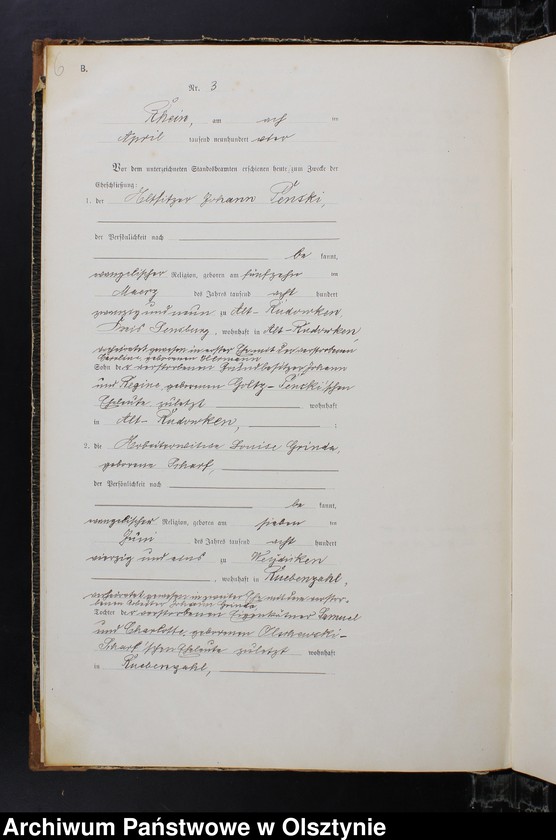 6
B.
Nr. 3
Rhein, am acht ten
April tausend neunhundert
Vor dem unterzeichneten Standesbeamten erschienen heute zum Zwecke der
Eheschließung:
1. der Altsitzer Johann Penski,
der Persönlichkeit nach
be kannt,
evangelischer Religion, geboren am fünfzehn ten
Maerz des Jahres tausend acht hundert
zwanzig und neun zu Alt-Rudowken,
Kreis Sensburg, wohnhaft in Alt-Rudowken,
verheiratet gewesen in erster Ehe mit der verstorbenen
Caroline, geborenen
Sohn der verstorbenen Grundbesitzer Johann
und Regine geborenen Goltz-Penski'schen
Eheleute zuletzt wohnhaft
in Alt-Rudowken, ;
2. die Arbeiterwitwe Louise Grinda,
geborene Scharf,
der Persönlichkeit nach
be kannt,
evangelischer Religion, geboren am sieben ten
Juni des Jahres tausend acht hundert
vierzig und eins zu Weydicken
, wohnhaft in Ruebenzahl,
verheiratet gewesen in zweiter Ehe mit dem verstor-
benen Arbeiter Johann Grinda
Tochter der verstorbenen Eigenkätner Samuel
und Charlotte, geborenen Olschewski-
Scharf'schen Eheleute zuletzt wohnhaft
in Ruebenzahl,
Archiwum Państwowe w Olsztynie